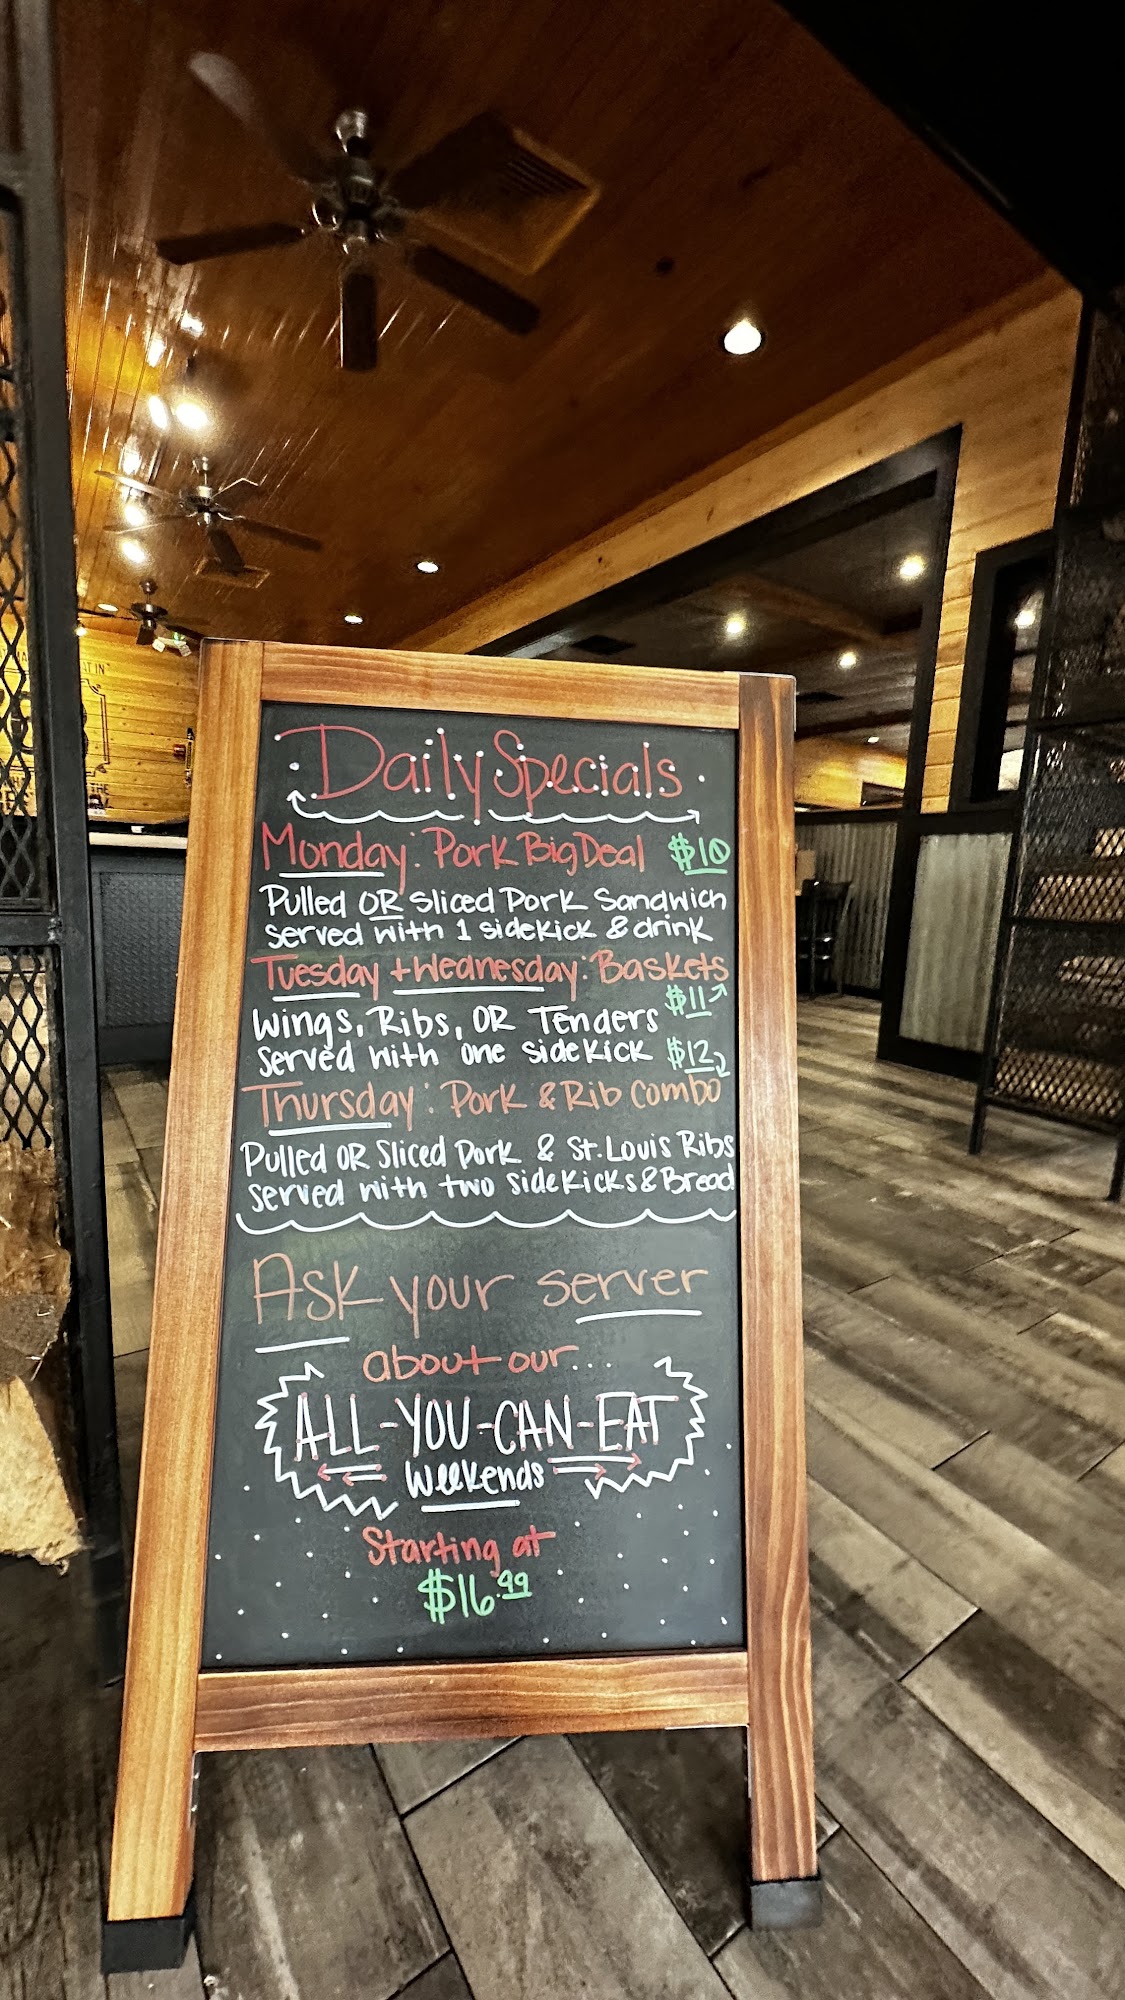 Daily Specials
Monday: Pork Big Deal $10
Pulled OR Sliced Pork Sandwich
Served with 1 sidekick & drink
Tuesday + Wednesday: Baskets
$11
Wings, Ribs, OR Tenders
Served with one sidekick $12
Thursday: Pork & Rib Combo
Pulled OR Sliced Pork & St. Louis Ribs
Served with two sidekicks & Bread
Ask your server
about our...
ALL-YOU-CAN-EAT
Weekends
Starting at
$16.99